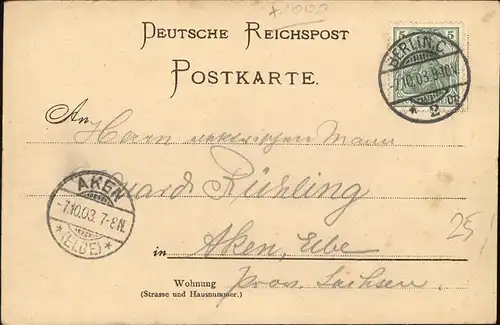 +1005
DEUTSCHE REICHSPOST
POSTKARTE.
5 5
BERLIN, C.
-7.10.03.9-10V.
* 2 *
An Herrn Mann
Eduard Rühling
AKEN
-7.10.03. 7-8N.
*(ELBE)*
in Aken, Elbe
25
Wohnung Prov. Sachsen.
(Strasse und Hausnummer.)